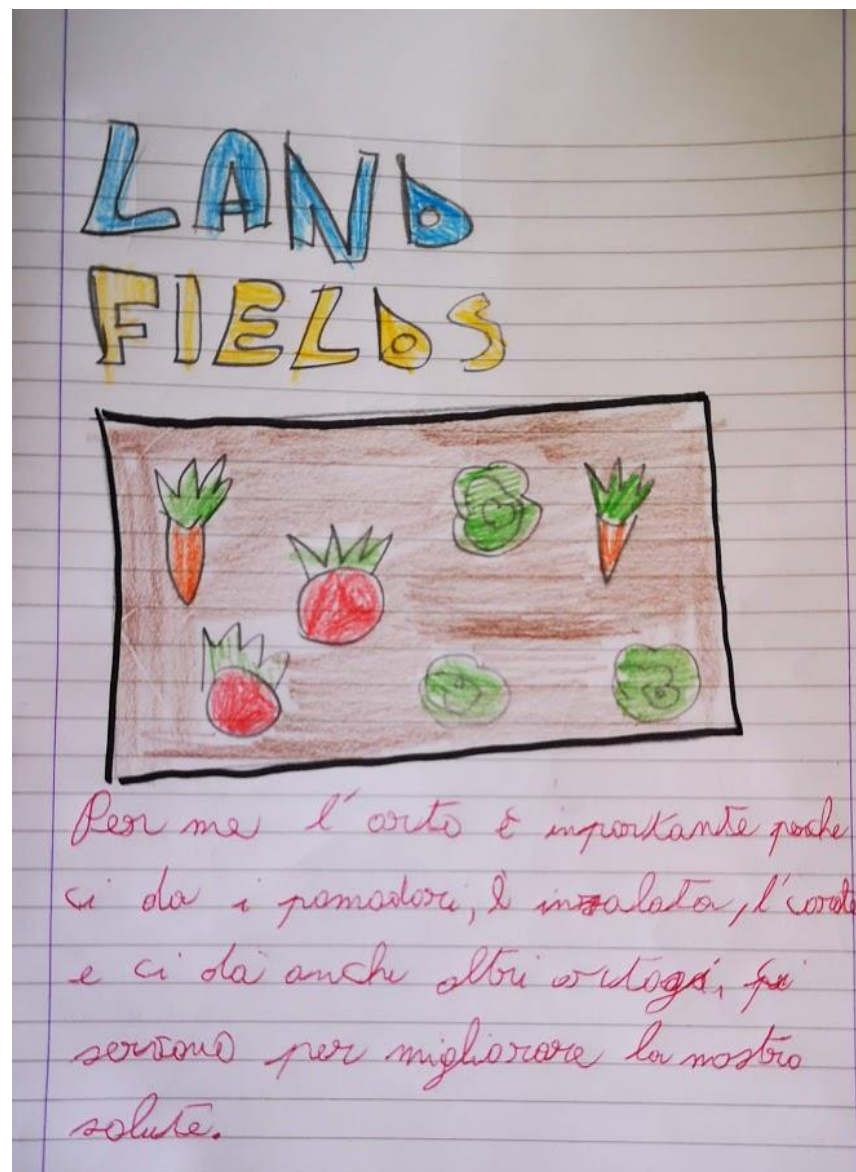 LAND
FIELDS
Per me l'orto è importante perche
ci da i pomodori, l insalata, l'
e ci dà anche altri ortaggi,
servono per migliorare la nostra
salute.